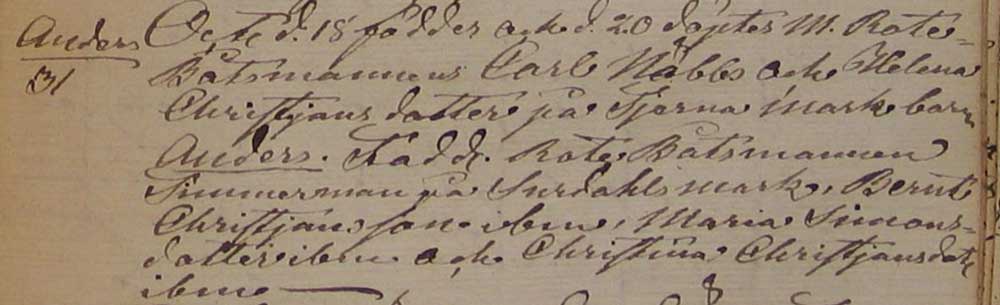 Anders
31
Oct. d. 18 föddes och d. 20 döptes M. Rote-
Båtsmannens Carl Nabbs och Helena
Christjansdotter på Tjerna mark barn
Anders. Fadd. Rote Båtsmannen
Simmerman på Surdahls mark, Bernt
Christjansson ibm, Maria Simons-
dotter ibm och Christina Christjansdotr
ibm